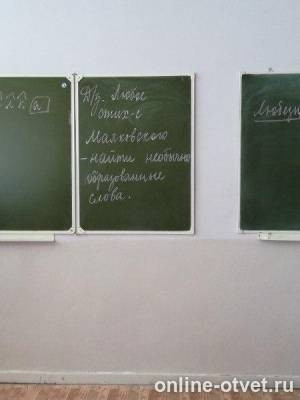 Д/з. Любое
стих-е
Маяковского
- найти необычно
образованные
слова.
online-otvet.ru